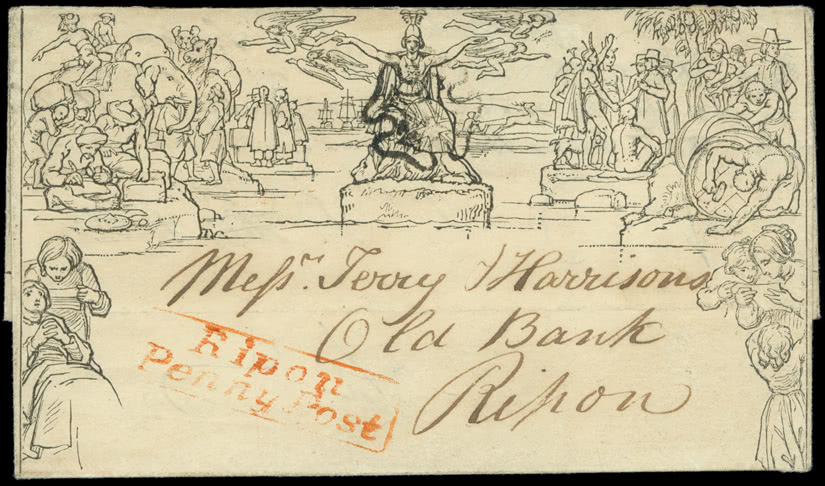 Messrs. Terry & Harrisons
Old Bank
Ripon
Ripon
Penny Post